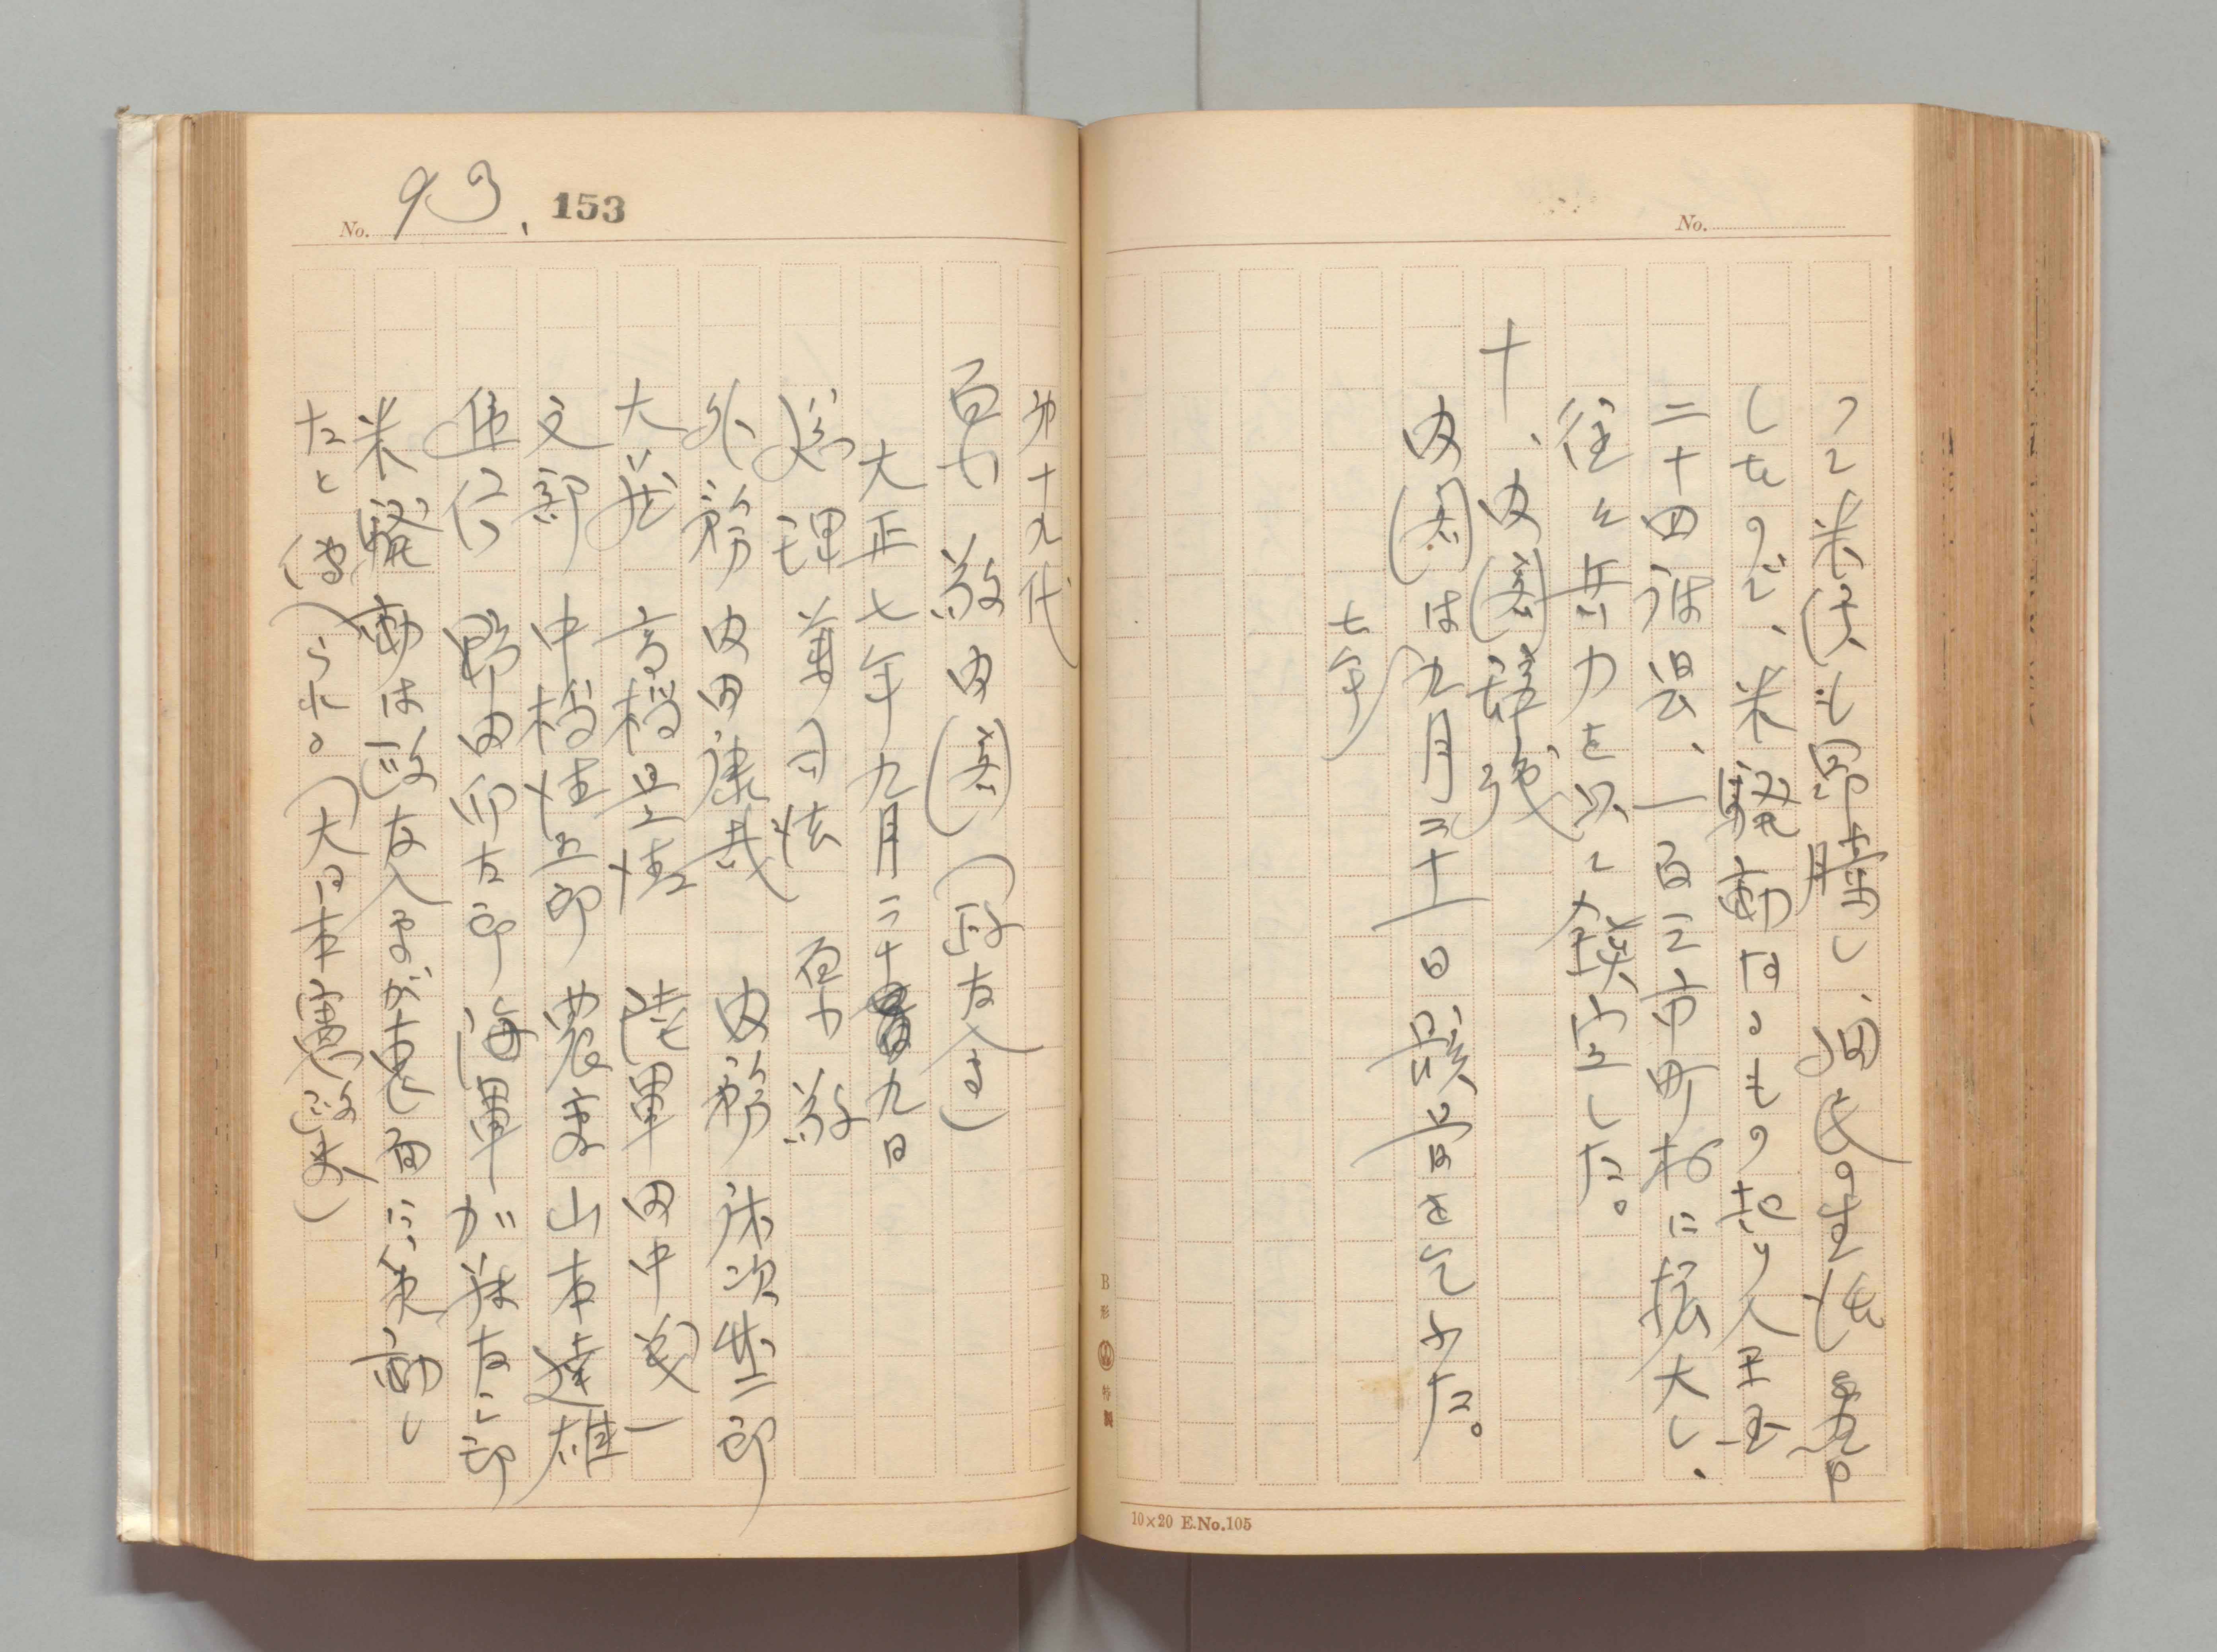 No.
つて米價も昂騰し、国民の生活を脅
したので、米騒動なるものが起り全国
二十四府県、一百三市町村に拡大し、
往々兵力を以て鎮定した。
十、内閣辞職
内閣は九月二十一日骸骨を乞ふた。
七年
10×20 E.No.105
B形 特製
No. 93. 153
第十九代
原 敬内閣(政友会)
大正七年九月二十九日
総理兼司法 原 敬
外務 内田康哉 内務 床次竹二郎
大蔵 高橋是清 陸軍 田中義一
文部 中橋徳五郎 農商 山本達雄
逓信 野田卯太郎 海軍 加藤友三郎
米騒動は政友会が裏面に策動し
たと傳へられる。(大日本憲政史)